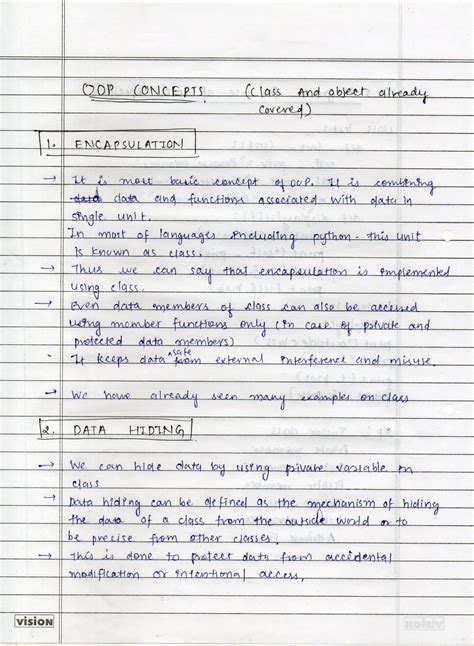 OOP CONCEPTS. (Class And object already
covered)
1. ENCAPSULATION
→ It is most basic concept of OOP. It is combining
data and functions associated with data in
single unit.
In most of languages including python. this unit
is known as class.
→ Thus we can say that encapsulation is implemented
using class.
→ Even data members of class can also be accessed
using member functions only (in case of private and
protected data members)
It keeps data safe from external interference and misuse.
→ We have already seen many examples on class
2. DATA HIDING
→ We can hide data by using private variable in
class
→ Data hiding can be defined as the mechanism of hiding
the data of a class from the outside world or to
be precise from other classes.
→ This is done to protect data from accidental
modification or intentional access.
vision